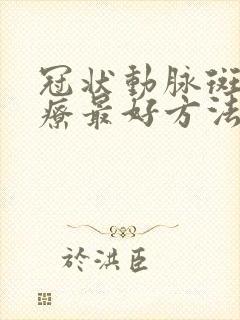 冠状動脉斑
療最好方法
於洪臣